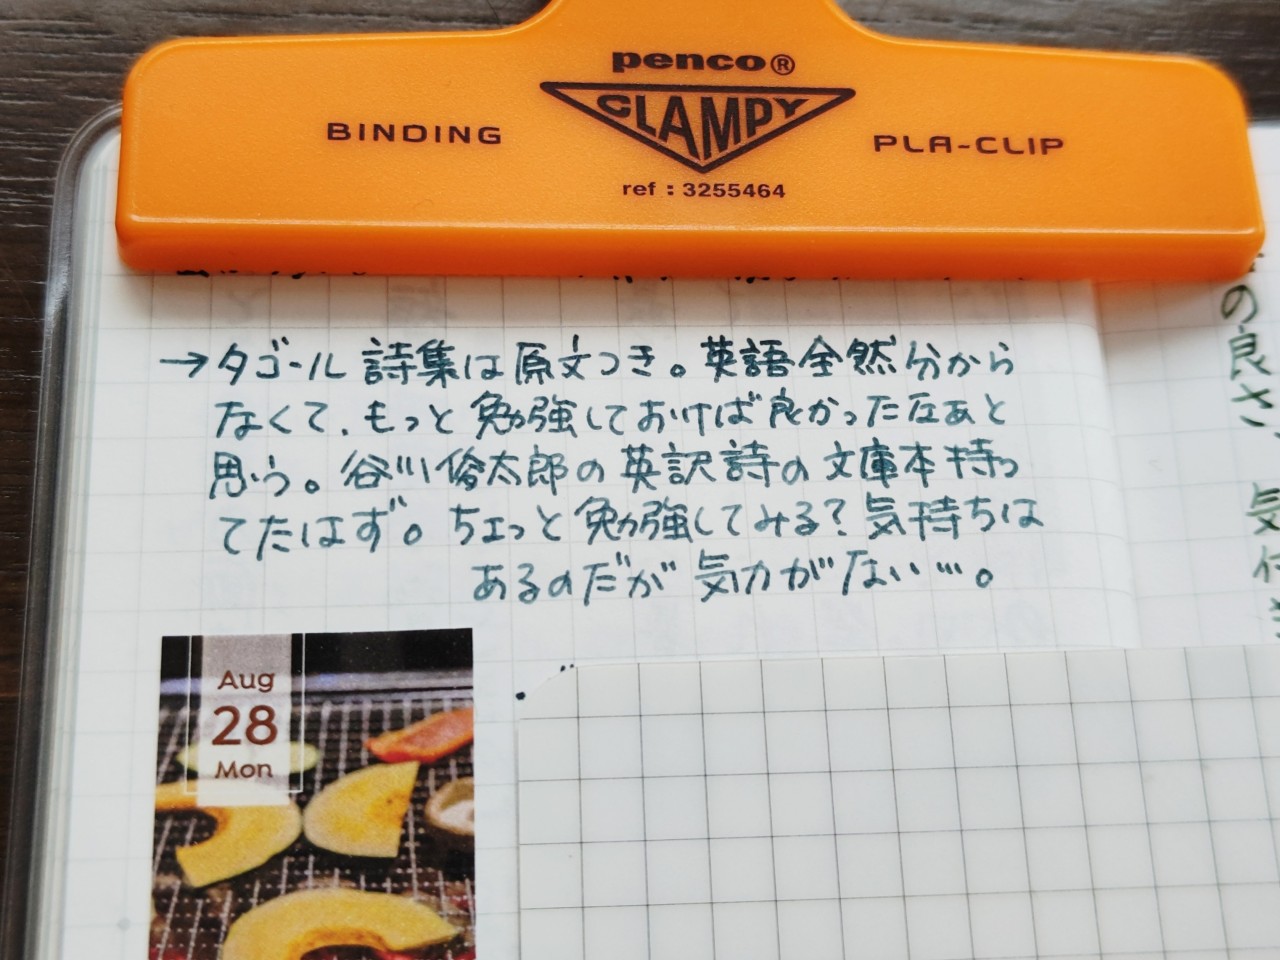 penco®
CLAMPY
BINDING
PLA-CLIP
ref : 3255464
→タゴール詩集は原文つき。英語全然分から
なくて、もっと勉強しておけば良かったなあと
思う。谷川俊太郎の英訳詩の文庫本持っ
てたはず。ちょっと勉強してみる?気持ちは
あるのだが気力がない…。
Aug
28
Mon
の良さ、
気付